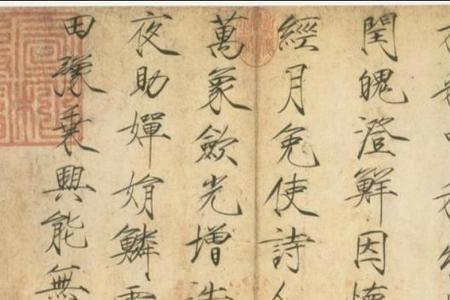 閏魄澄鮮因
經月免使詩
萬象歛光增
夜助嬋娟鱗
田豫乘興能無